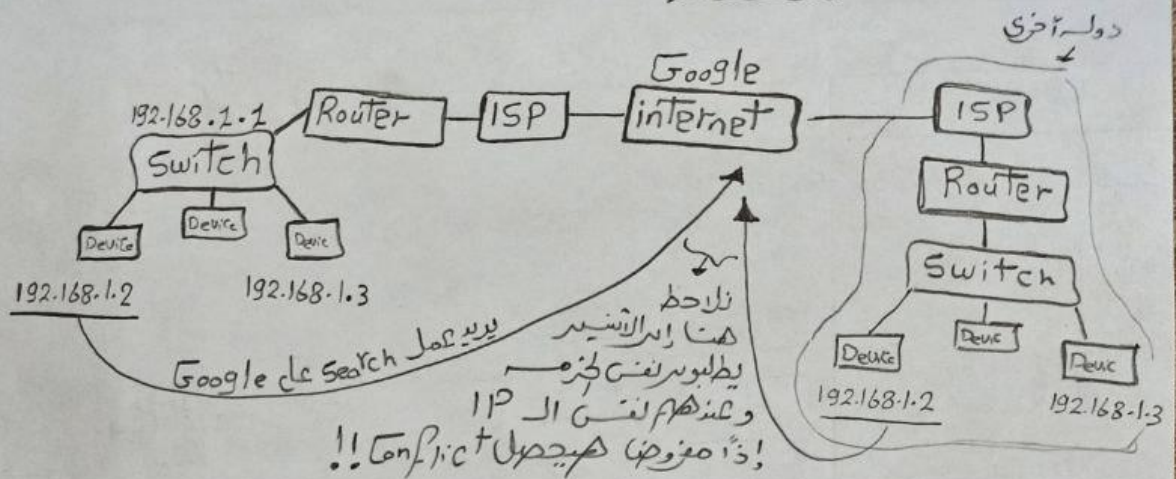 دولة أخرى
Google
192.168.1.1
Router
ISP
internet
ISP
Switch
Router
Device
Device
Devic
Switch
192.168.1.2
192.168.1.3
Device
Devic
Devic
192.168.1.2
192.168.1.3
يريد عمل Search على Google
نلاحظ
هنا إن الأتنين
يطلبون نفس الخدمة
وعندهم نفس الـ IP
إذاً مفروض هيحصل Conflict !!